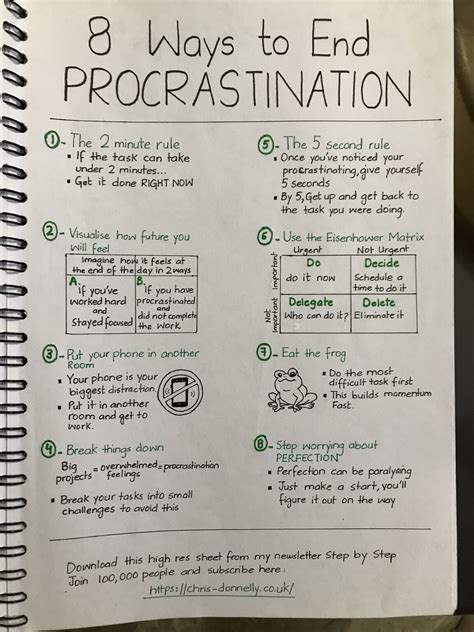 8 Ways to End
PROCRASTINATION
1 - The 2 minute rule
▪ If the task can take
under 2 minutes...
▪ Get it done RIGHT NOW
2 - Visualise how future you
will feel
Imagine how it feels at
the end of the day in 2 ways
A:
if you've
worked hard
and
Stayed focused
B:
if you have
procrastinated
and
did not complete
the work.
3 - Put your phone in another
Room
▪ Your phone is your
biggest distraction.
▪ Put it in another
room and get to
work.
4 - Break things down
Big projects = overwhelmed feelings = procrastination
▪ Break your tasks into small
challenges to avoid this
5 - The 5 second rule
▪ Once you've noticed your
procrastinating, give yourself
5 seconds
▪ By 5, Get up and get back to
the task you were doing.
6 - Use the Eisenhower Matrix
Urgent Not Urgent
Important
Do
do it now
Decide
Schedule a
time to do it
Not Important
Delegate
Who can do it?
Delete
Eliminate it
7 - Eat the frog
▪ Do the most
difficult task first
▪ This builds momentum
Fast.
8 - Stop worrying about
PERFECTION
▪ Perfection can be paralying
▪ Just make a start, you'll
figure it out on the way
Download this high res sheet from my newsletter Step by Step
Join 100,000 people and subscribe here:
https://chris-donnelly.co.uk/